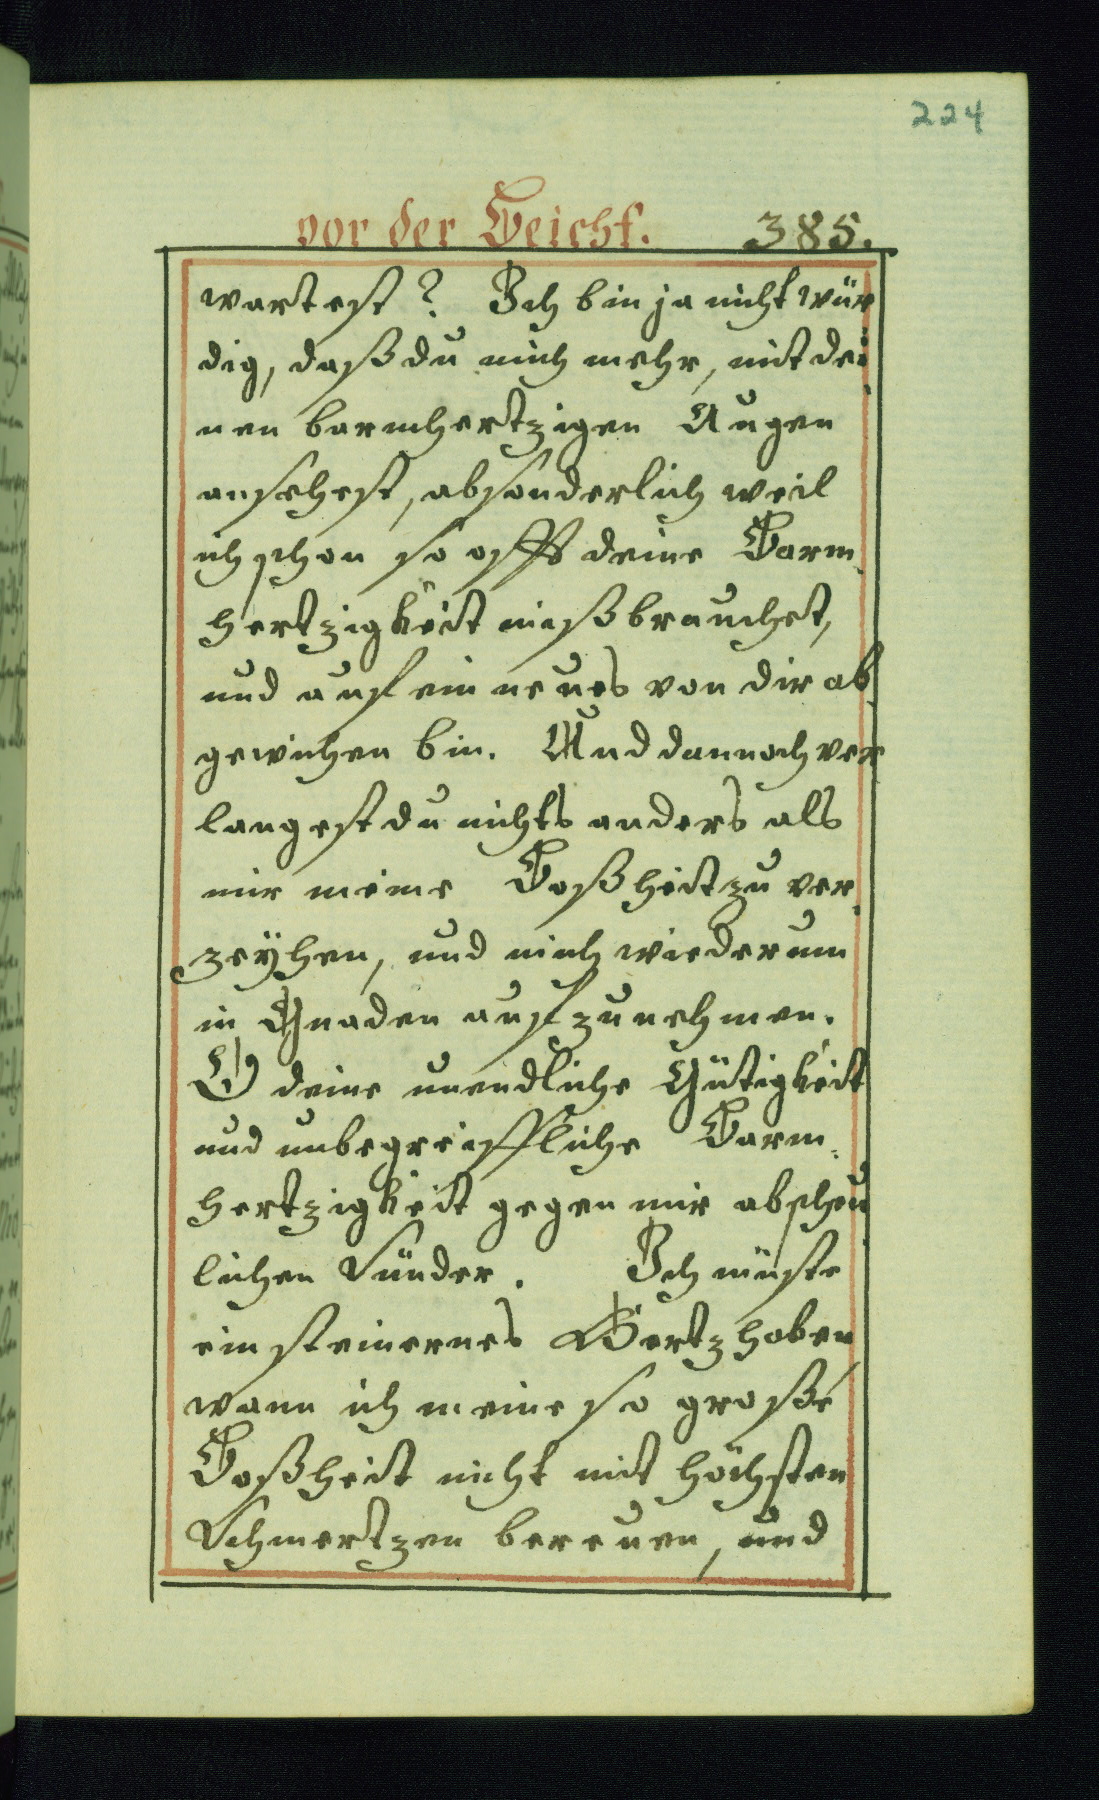 224
vor der Beicht. 385.
wartest? Ich bin ja nicht wür
dig, daß du mich mehr, mit dei
nen barmhertzigen Augen
ansehest, absonderlich weil
ich schon so offt deine Barm
hertzigkeit mißbrauchet,
und auf ein neues von dir ab
gewichen bin. Und dannoch ver
langest du nichts anders als
mir meine Boßheit zu ver
zeÿhen, und mich wiederum
in Gnaden aufzunehmen.
O deine unendliche Gütigkeit
und unbegreiffliche Barm
hertzigkeit gegen mir abscheu
lichen Sünder. Ich müste
ein steinernes Hertz haben
wann ich meine so große
Boßheit nicht mit höchsten
Schmertzen bereuen, und